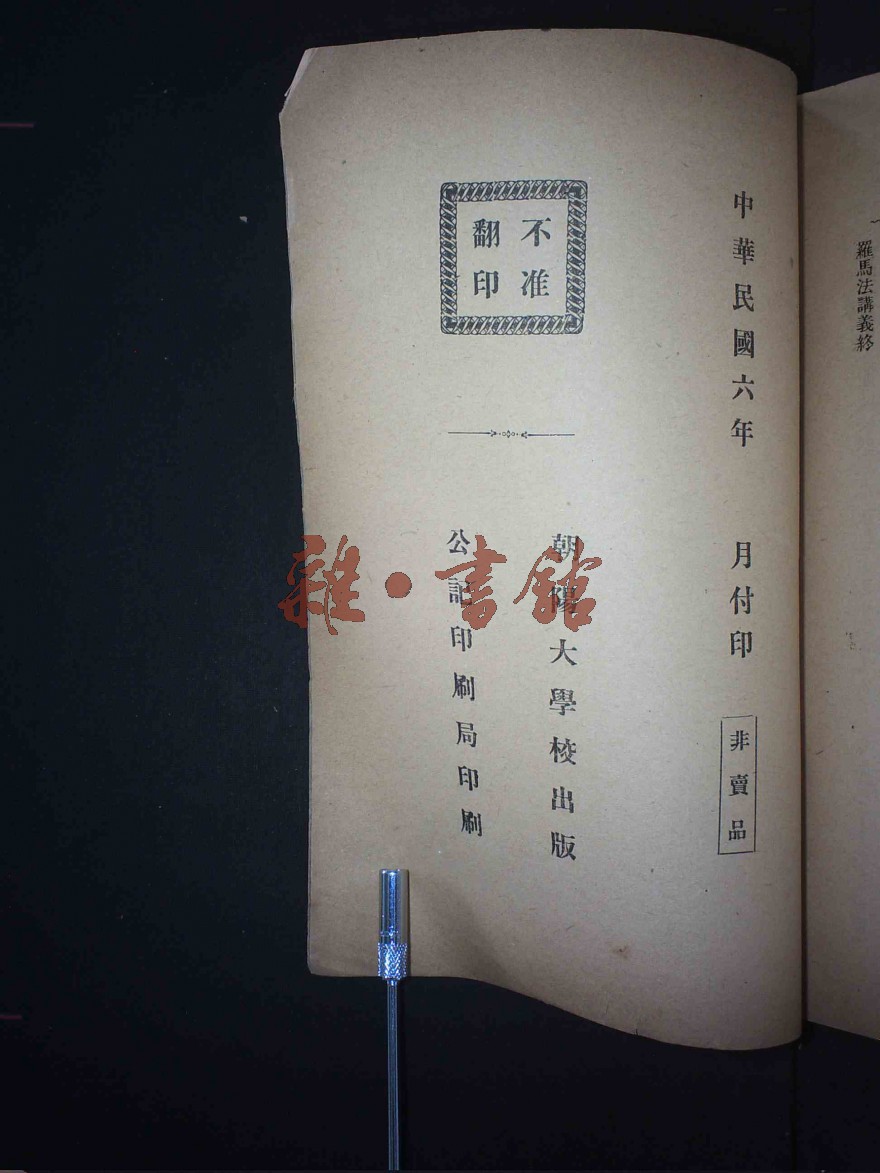 羅馬法講義終
中華民國六年 月付印
非賣品
不准
翻印
朝陽大學校出版
公記印刷局印刷
雜·書館